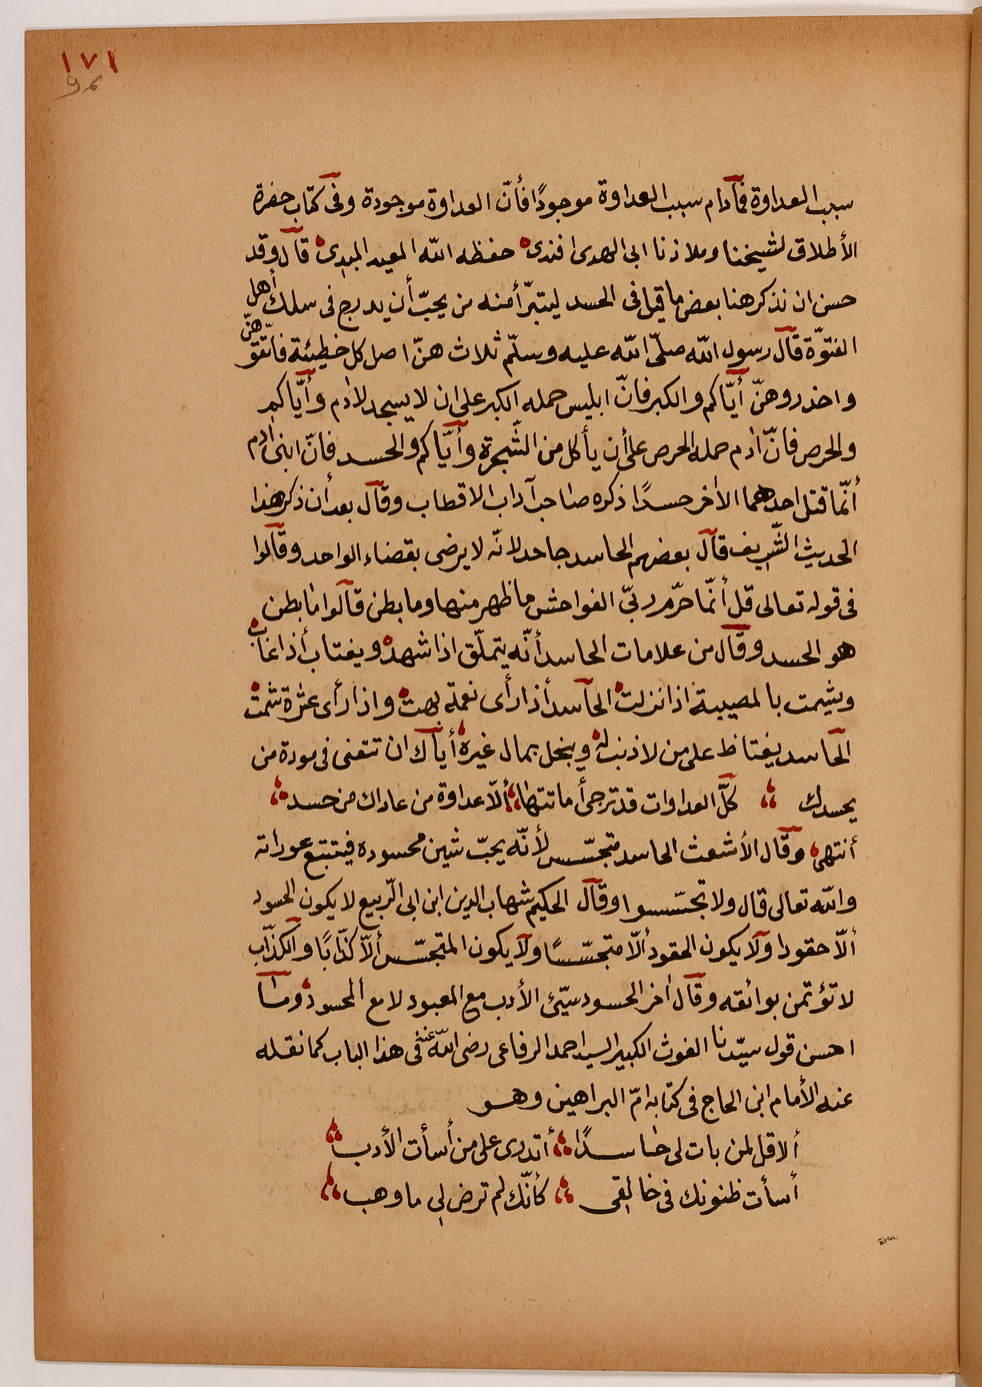 ١٧١
٩٣
سبب العداوة فمآدام سبب العداوة موجودًا فأنّ العداوة موجودة وفى كتاب حفرة
الأطلاق لشيخنا وملاذنا ابى الهدى افندى حفظه الله المعيد المبدى قآل وقد
حسن ان نذكر هنا بعض ما قيل فى الحسد ليتبرّأ منه من يحبّ أن يدرج فى سلك أهل
الفتوّة قآل رسول الله صلّى الله عليه وسلّم ثلاث هنّ اصل كل خطيئة فاتّقوهنّ
واحذروهنّ أيّاكم والكبر فانّ ابليس حمله الكبر على ان لا يسجد لاٰدم وأيّاكم
والحرص فانّ اٰدم حمله الحرص على أن يأكل من الشّجرة وأيّاكم والحسد فانّ ابنى اٰدم
أنّما قتل احدهما الاٰخر حسدًا ذكره صاحب آداب الاقطاب وقآل بعد أن ذكر هذا
الحديث الشّريف قآل بعضهم الحاسد جاحد لانّه لا يرضى بقضاء الواحد وقآلوا
فى قوله تعالى قل أنّما حرّم ربّى الفواحش ما ظهر منها وما بطن قآلوا ما بطن
هو الحسد وقآل من علامات الحاسد أنّه يتملّق اذا شهد ويغتاب أذا غاب
ويشمت بالمصيبة اذا نزلت الحآسد أذا رأى نعمة بهت واذا رأى عثرة شمت
الحآسد يغتاظ على من لا ذنب له ويبخل بمال غيره أيآك ان تتعنى فى مودة من
يحسدك كلّ العداوات قد ترجى أماتتها ألّا عداوة من عاداك من حسد
أنتهى وقآل الأشعث الحاسد متجسّس لأنّه يحبّ شين محسوده فيتتبع عوراته
والله تعالى قال ولا تجسّسوا وقآل الحكيم شهاب الدين ابن ابى الرّبيع لا يكون الحسود
ألّا حقودا ولآ يكون الحقود ألّا متجسّسًا ولآ يكون المتجسّس ألّا كذّابًا والكذّاب
لا تؤتمن بوائقه وقآل اٰخر الحسود سيّئ الأدب مع المعبود لا مع المحسود ومآ
احسن قول سيّدنا الغوث الكبير السيد احمد الرفاعى رضى الله عنه فى هذا الباب كما نقله
عنه الأمام ابن الحاج فى كتابه امّ البراهين وهو
ألا قل لمن بات لى حاسدًا أتدرى على من أسأت الأدب
أسأت ظنونك فى خالقى كأنّك لم ترض لى ما وهب